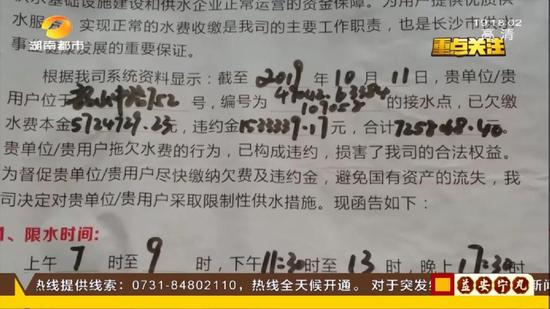 T918:02
高清
湖南都市
重点关注
供水基础设施建设和供水企业正常运营的资金保障。为用户提供优质供
水服 实现正常的水费收缴是我司的主要工作职责，也是长沙市
事业健康发展的重要保证。
根据我司系统资料显示：截至 2019 年 10 月 11 日，贵单位/贵
用户位于 752 号，编号为 的接水点，已欠缴
水费本金 5724729.23 元，违约金 1533339.17 元，合计 7258068.40
贵单位/贵用户拖欠水费的行为，已构成违约，损害了我司的合法权益。
为督促贵单位/贵用户尽快缴纳欠费及违约金，避免国有资产的流失，我
司决定对贵单位/贵用户采取限制性供水措施。现函告如下：
1、限水时间：
上午 7 时至 9 时，下午 11:30 时至 13 时，晚上 17:30 时
热线提供线索：0731-84802110，热线全天候开通。 对于突发
益安宁丸
新闻